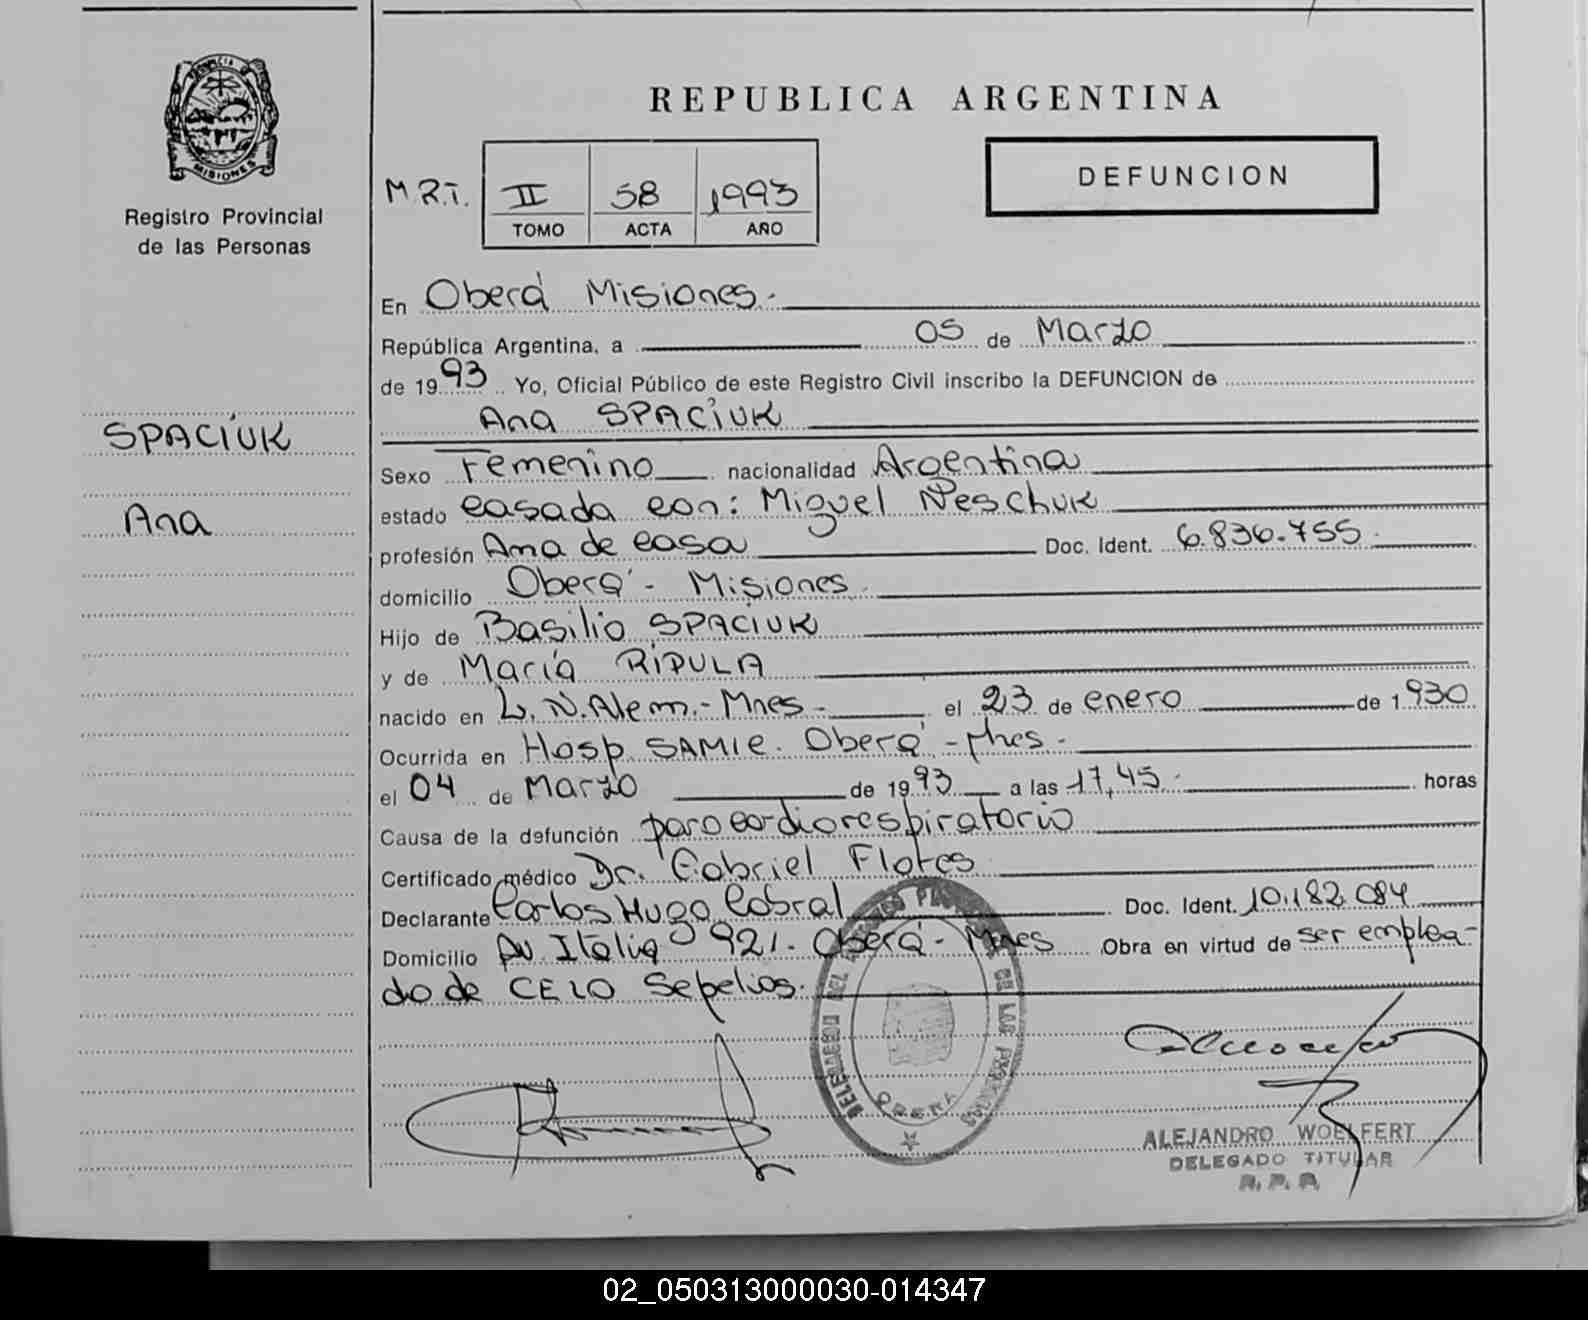 PROVINCIA D
MISIONES
Registro Provincial
de las Personas
SPACIUK
Ana
REPUBLICA ARGENTINA
M.R.T. II 58 1993
TOMO ACTA AÑO
DEFUNCION
En Oberá Misiones.
República Argentina, a 05 de Marzo
de 1993 Yo, Oficial Público de este Registro Civil inscribo la DEFUNCION de
Ana SPACIUK
Sexo Femenino nacionalidad Argentina
estado casada con: Miguel Ñeschuk
profesión Ama de casa Doc. Ident. 6.836.755.
domicilio Oberá - Misiones
Hijo de Basilio SPACIUK
y de María RIPULA
nacido en L. N. Alem.- Mnes - el 23 de enero de 1930
Ocurrida en Hosp. SAMIC. Oberá - Mnes -
el 04 de Marzo de 1993 a las 17,45. horas
Causa de la defunción paro cardiorespiratorio
Certificado médico Dr. Gabriel Flores
Declarante Carlos Hugo Cabral Doc. Ident. 10.182.084
Domicilio Av. Italia 921. Oberá - Mnes Obra en virtud de ser emplea-
do de CELO Sepelios.
OBERA
ALEJANDRO WOELFERT
DELEGADO TITULAR
R. P. P.
02_050313000030-014347